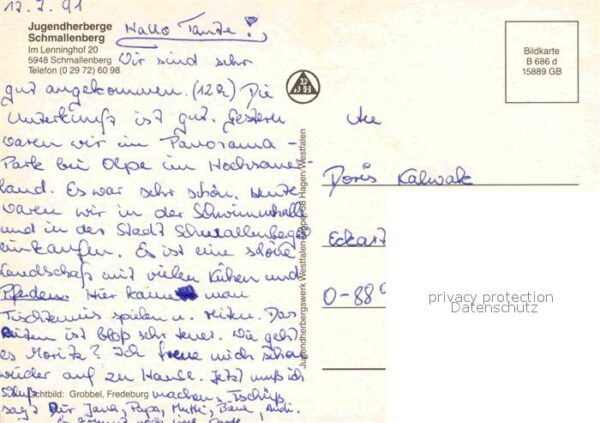 17.7.91
Jugendherberge
Schmallenberg
Im Lenninghof 20
5948 Schmallenberg
Telefon (0 29 72) 60 98
Hallo Tante!
Wir sind sehr
gut angekommen. (12h) Die
Unterkunft ist gut. Gestern
waren wir im Panorama-
Park bei Olpe im Hochsauer-
land. Es war sehr schön. Heute
waren wir in der Schwimmhalle
und in der Stadt Schmallenberg
einkaufen. Es ist eine schöne
Landschaft mit vielen Kühen und
Pferden. Hier kann man
Tischtennis spielen u. Reiten. Das
Reiten ist bloß sehr teuer. Wie geht
es Moritz? Ich freue mich schon
wieder auf zu Hause. Jetzt muß ich
Schluß machen. Tschüß
sagt Dir Jana, Papa, Mutti, Andi.
Lichtbild: Grobbel, Fredeburg
DJH
Jugendherbergswerk Westfalen-Lippe 58 Hagen/Westfalen
Bildkarte
B 686 d
15889 GB
An
Doris Kalwak
Eckart
O-88
privacy protection
Datenschutz